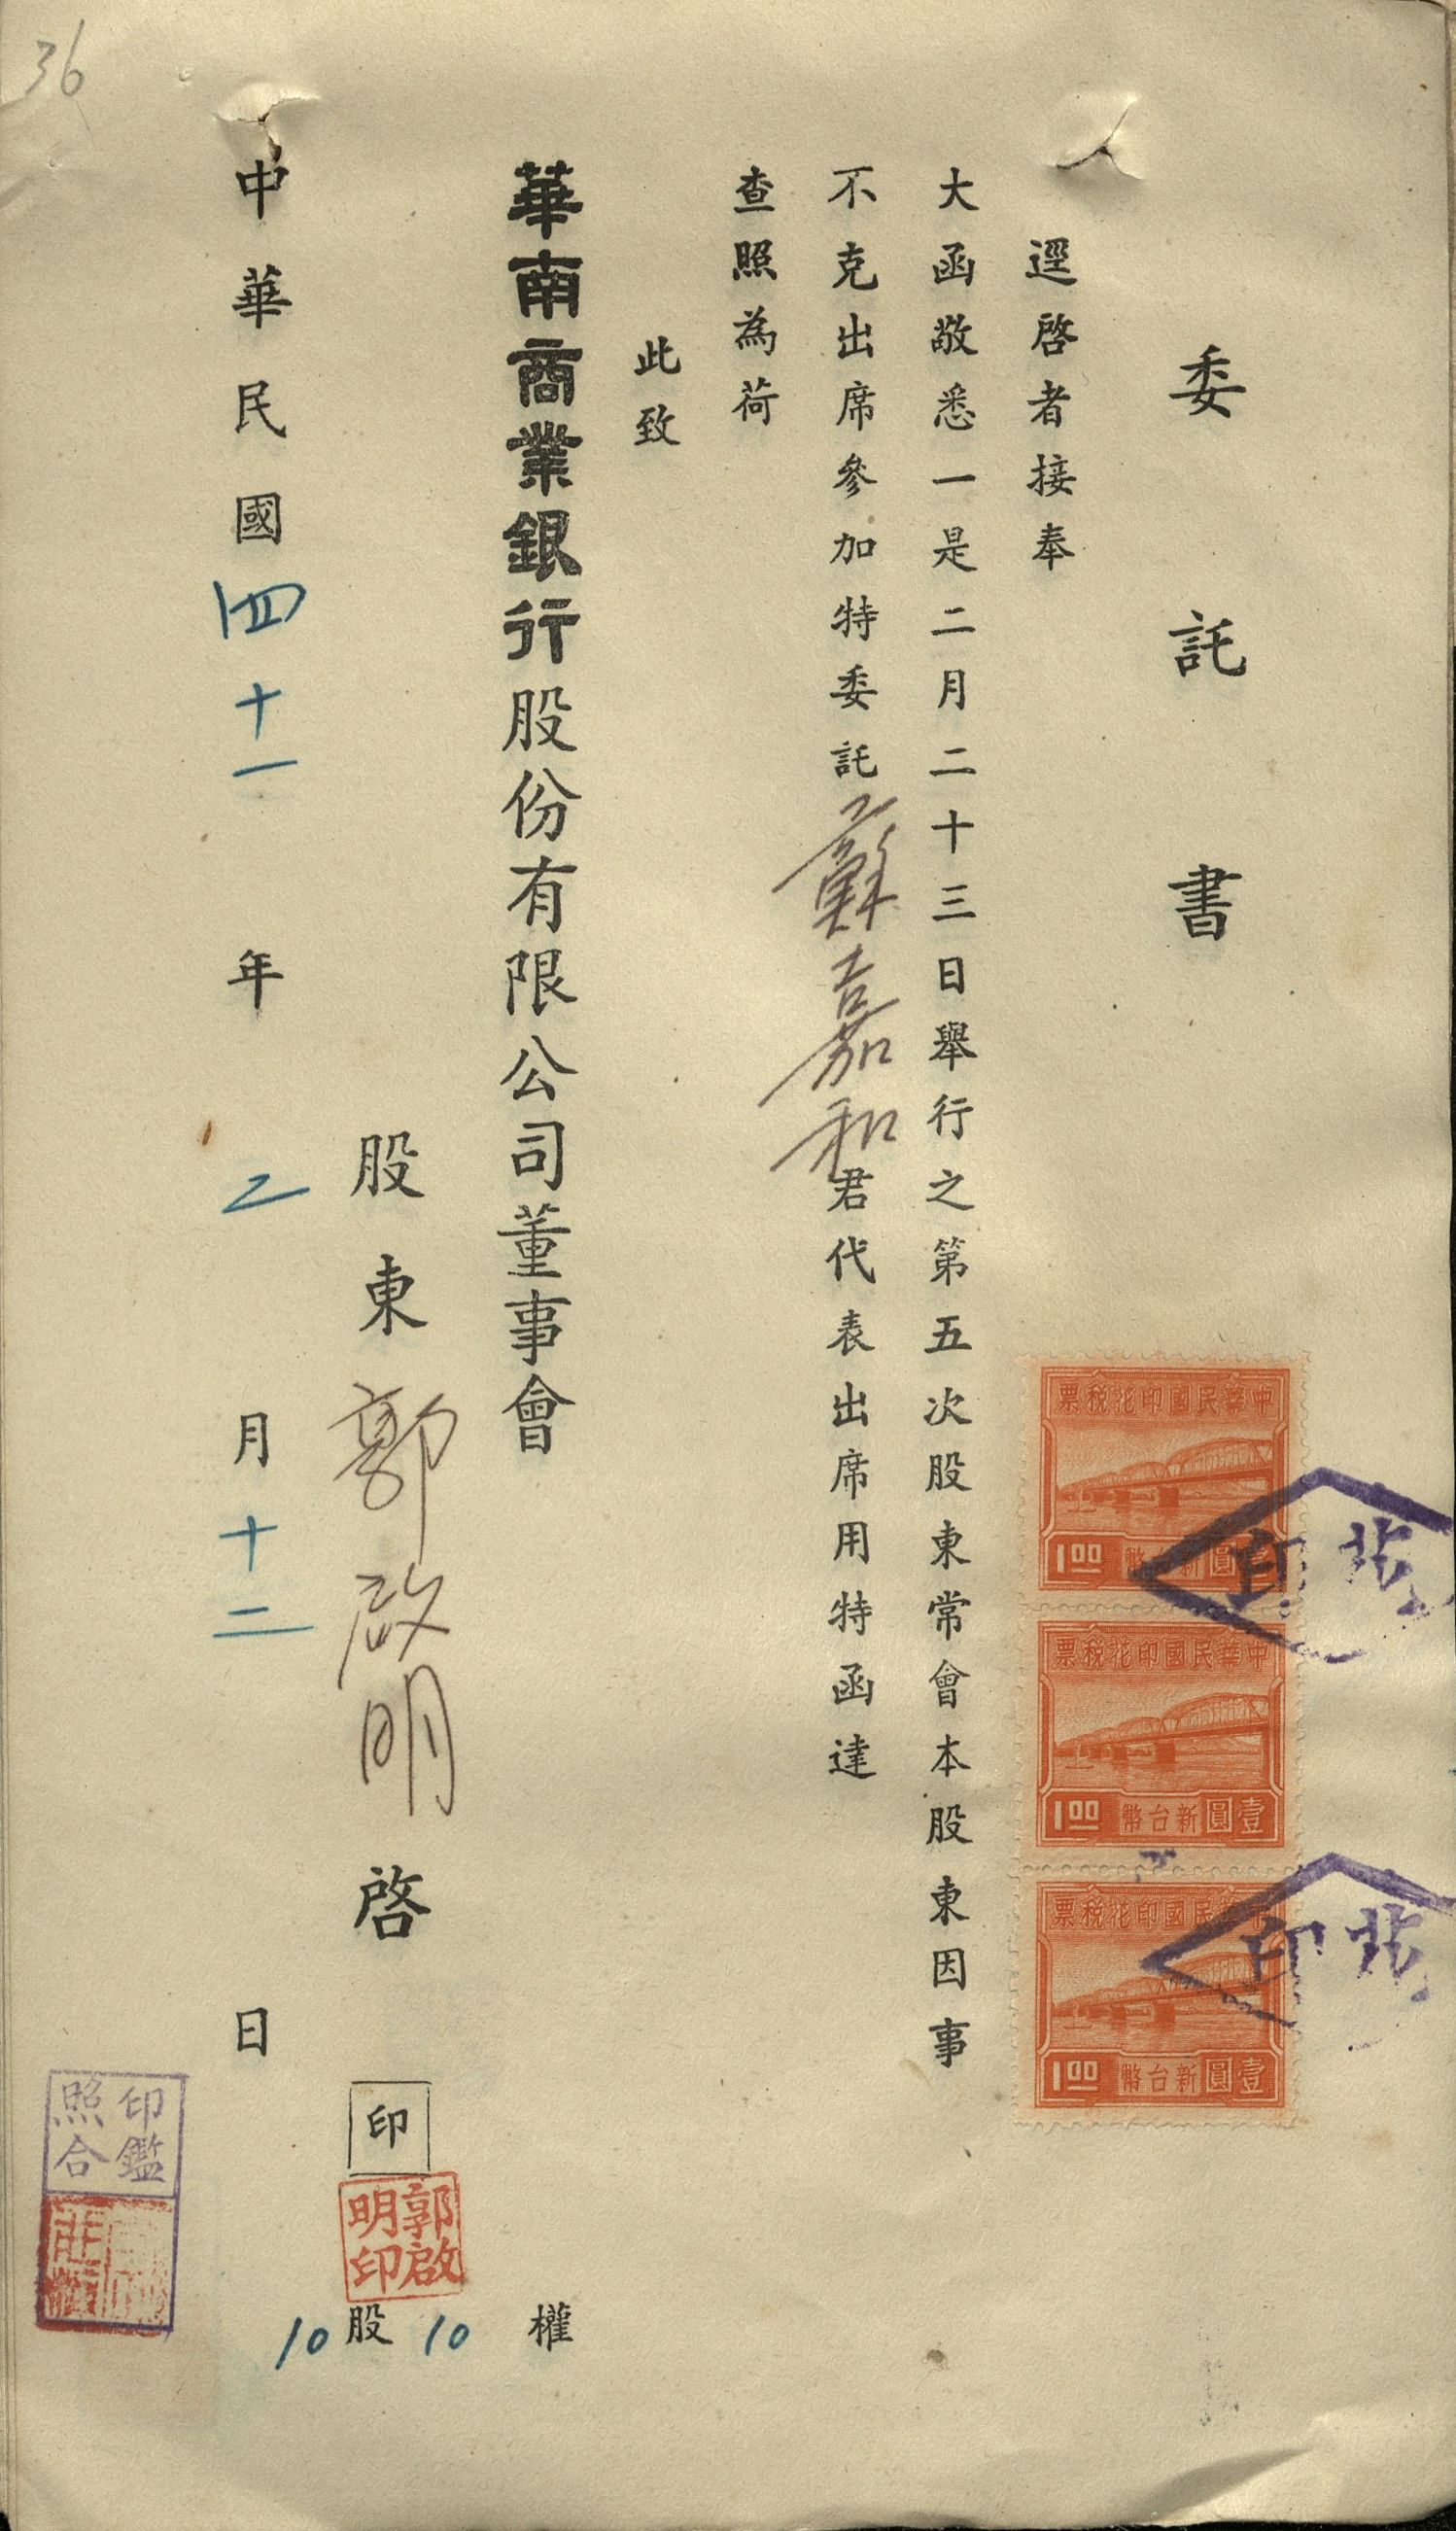 36
委託書
逕啓者接奉
大函敬悉一是二月二十三日舉行之第五次股東常會本股東因事
不克出席參加特委託蘇嘉和君代表出席用特函達
查照為荷
此致
華南商業銀行股份有限公司董事會
股東郭啟明啓
印
郭啟明印
10股10權
中華民國四十一年二月十二日
印鑑照合
中華民國印花稅票
1.00 新台幣壹圓
中華民國印花稅票
1.00 新台幣壹圓
中華民國印花稅票
1.00 新台幣壹圓